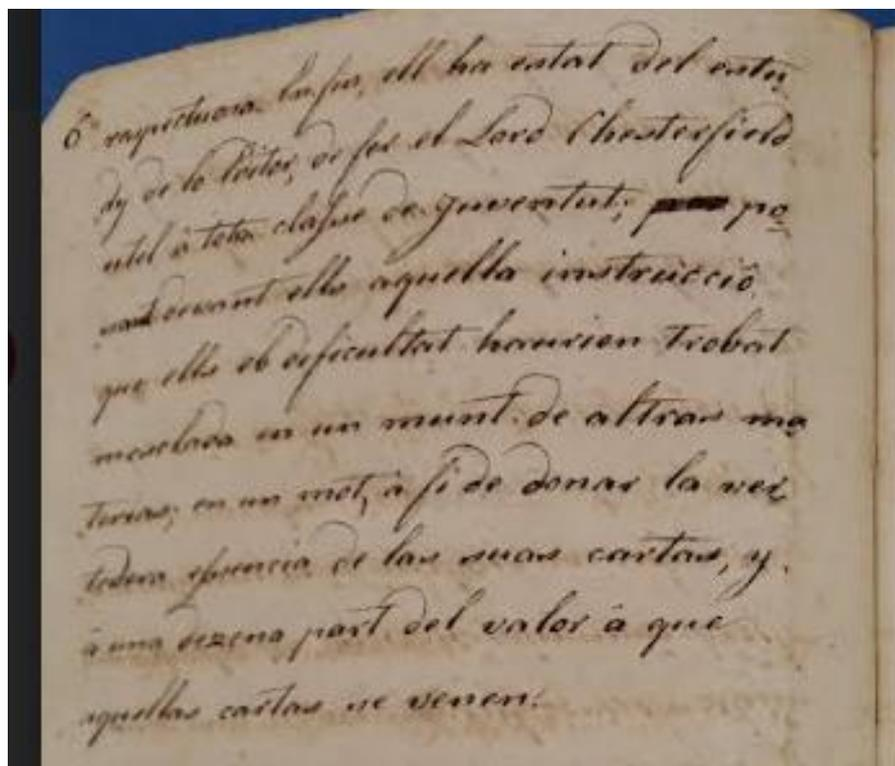 6ª respectuosa. En fin, ell ha estat del estu
dy de lo Editor, de fer el Lord Chesterfield
util á tota classe de Juventut; po
sant devant ells aquella instrucció
que ells ab dificultat haurien trobat
mesclada en un munt de altras ma
terias; en un mot, á fi de donar la ver
tadera essencia de las suas cartas, y
á una dezena part del valor á que
aquellas cartas se venen.